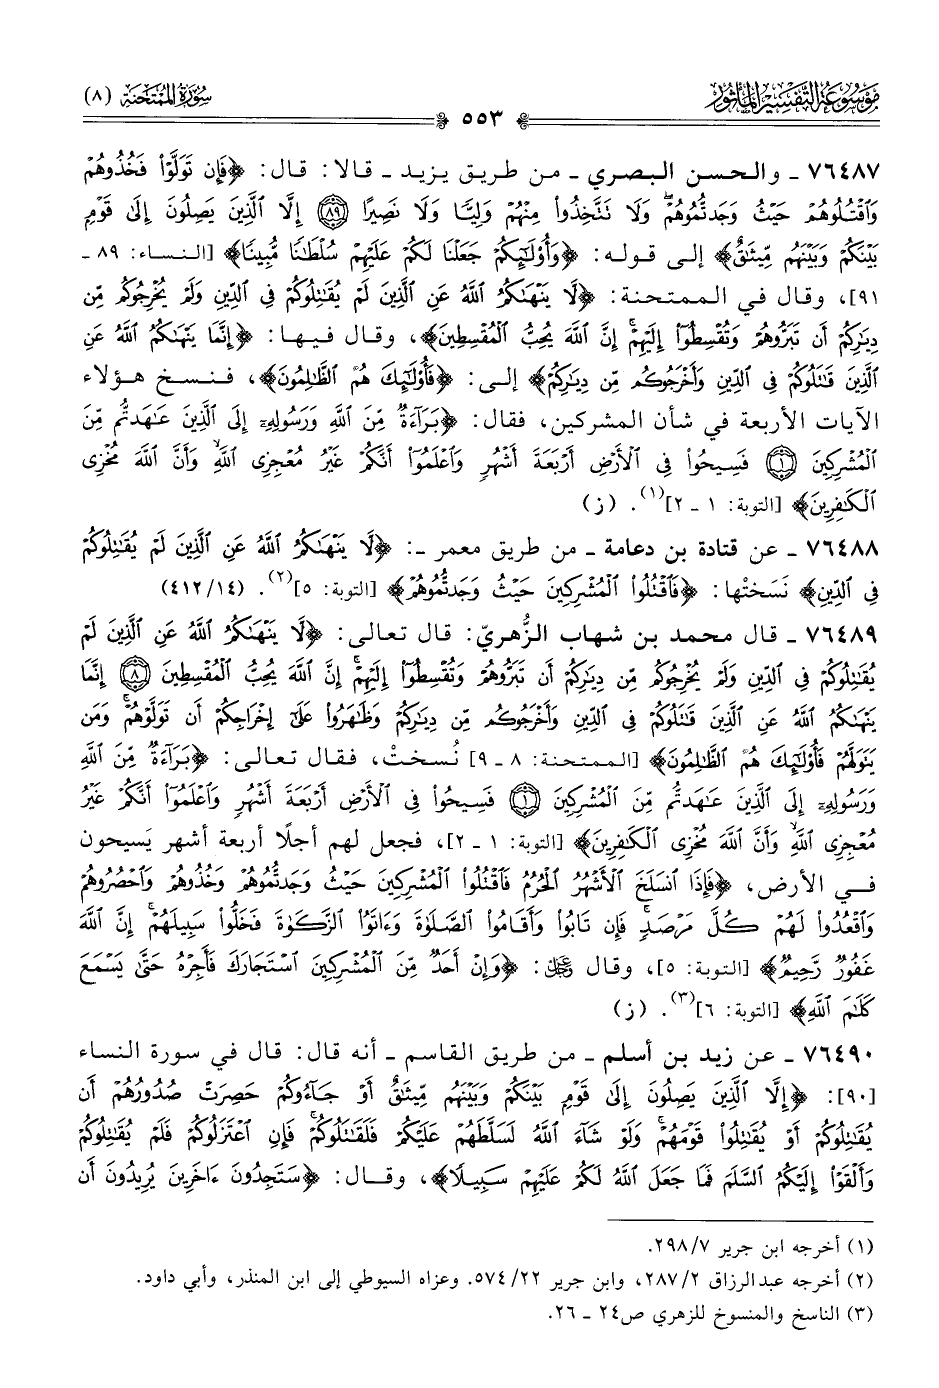 مَوْسُوعَة التَّفْسِيرِ المَأْثُور
سُورَةُ المُمْتَحنَة (٨)
٥٥٣
٧٦٤٨٧ ـ والحسن البصري ـ من طريق يزيد ـ قالا: قال: ﴿فَإِن تَوَلَّوْا۟ فَخُذُوهُمْ
وَٱقْتُلُوهُمْ حَيْثُ وَجَدتُّمُوهُمْ ۖ وَلَا تَتَّخِذُوا۟ مِنْهُمْ وَلِيًّا وَلَا نَصِيرًا ﴿٨٩﴾ إِلَّا ٱلَّذِينَ يَصِلُونَ إِلَىٰ قَوْمٍۭ
بَيْنَكُمْ وَبَيْنَهُم مِّيثَٰقٌ﴾ إلى قوله: ﴿وَأُو۟لَٰٓئِكُمْ جَعَلْنَا لَكُمْ عَلَيْهِمْ سُلْطَٰنًا مُّبِينًا﴾ [النساء: ٨٩ ـ
٩١]، وقال في الممتحنة: ﴿لَّا يَنْهَىٰكُمُ ٱللَّهُ عَنِ ٱلَّذِينَ لَمْ يُقَٰتِلُوكُمْ فِى ٱلدِّينِ وَلَمْ يُخْرِجُوكُم مِّن
دِيَٰرِكُمْ أَن تَبَرُّوهُمْ وَتُقْسِطُوٓا۟ إِلَيْهِمْ ۚ إِنَّ ٱللَّهَ يُحِبُّ ٱلْمُقْسِطِينَ﴾، وقال فيها: ﴿إِنَّمَا يَنْهَىٰكُمُ ٱللَّهُ عَنِ
ٱلَّذِينَ قَٰتَلُوكُمْ فِى ٱلدِّينِ وَأَخْرَجُوكُم مِّن دِيَٰرِكُمْ﴾ إلى: ﴿فَأُو۟لَٰٓئِكَ هُمُ ٱلظَّٰلِمُونَ﴾، فنسخ هؤلاء
الآيات الأربعة في شأن المشركين، فقال: ﴿بَرَآءَةٌ مِّنَ ٱللَّهِ وَرَسُولِهِۦٓ إِلَى ٱلَّذِينَ عَٰهَدتُّم مِّنَ
ٱلْمُشْرِكِينَ ﴿١﴾ فَسِيحُوا۟ فِى ٱلْأَرْضِ أَرْبَعَةَ أَشْهُرٍ وَٱعْلَمُوٓا۟ أَنَّكُمْ غَيْرُ مُعْجِزِى ٱللَّهِ ۙ وَأَنَّ ٱللَّهَ مُخْزِى
ٱلْكَٰفِرِينَ﴾ [التوبة: ١ ـ ٢](١). (ز)
٧٦٤٨٨ ـ عن قتادة بن دعامة ـ من طريق معمر ـ: ﴿لَّا يَنْهَىٰكُمُ ٱللَّهُ عَنِ ٱلَّذِينَ لَمْ يُقَٰتِلُوكُمْ
فِى ٱلدِّينِ﴾ نَسَختْها: ﴿فَٱقْتُلُوا۟ ٱلْمُشْرِكِينَ حَيْثُ وَجَدتُّمُوهُمْ﴾ [التوبة: ٥](٢). (٤١٢/١٤)
٧٦٤٨٩ ـ قال محمد بن شهاب الزُّهريّ: قال تعالى: ﴿لَّا يَنْهَىٰكُمُ ٱللَّهُ عَنِ ٱلَّذِينَ لَمْ
يُقَٰتِلُوكُمْ فِى ٱلدِّينِ وَلَمْ يُخْرِجُوكُم مِّن دِيَٰرِكُمْ أَن تَبَرُّوهُمْ وَتُقْسِطُوٓا۟ إِلَيْهِمْ ۚ إِنَّ ٱللَّهَ يُحِبُّ ٱلْمُقْسِطِينَ ﴿٨﴾ إِنَّمَا
يَنْهَىٰكُمُ ٱللَّهُ عَنِ ٱلَّذِينَ قَٰتَلُوكُمْ فِى ٱلدِّينِ وَأَخْرَجُوكُم مِّن دِيَٰرِكُمْ وَظَٰهَرُوا۟ عَلَىٰٓ إِخْرَاجِكُمْ أَن تَوَلَّوْهُمْ ۚ وَمَن
يَتَوَلَّهُمْ فَأُو۟لَٰٓئِكَ هُمُ ٱلظَّٰلِمُونَ﴾ [الممتحنة: ٨ ـ ٩] نُسختْ، فقال تعالى: ﴿بَرَآءَةٌ مِّنَ ٱللَّهِ
وَرَسُولِهِۦٓ إِلَى ٱلَّذِينَ عَٰهَدتُّم مِّنَ ٱلْمُشْرِكِينَ ﴿١﴾ فَسِيحُوا۟ فِى ٱلْأَرْضِ أَرْبَعَةَ أَشْهُرٍ وَٱعْلَمُوٓا۟ أَنَّكُمْ غَيْرُ
مُعْجِزِى ٱللَّهِ ۙ وَأَنَّ ٱللَّهَ مُخْزِى ٱلْكَٰفِرِينَ﴾ [التوبة: ١ ـ ٢]، فجعل لهم أجلًا أربعة أشهر يَسيحون
في الأرض، ﴿فَإِذَا ٱنسَلَخَ ٱلْأَشْهُرُ ٱلْحُرُمُ فَٱقْتُلُوا۟ ٱلْمُشْرِكِينَ حَيْثُ وَجَدتُّمُوهُمْ وَخُذُوهُمْ وَٱحْصُرُوهُمْ
وَٱقْعُدُوا۟ لَهُمْ كُلَّ مَرْصَدٍ ۚ فَإِن تَابُوا۟ وَأَقَامُوا۟ ٱلصَّلَوٰةَ وَءَاتَوُا۟ ٱلزَّكَوٰةَ فَخَلُّوا۟ سَبِيلَهُمْ ۚ إِنَّ ٱللَّهَ
غَفُورٌ رَّحِيمٌ﴾ [التوبة: ٥]، وقال ﷻ: ﴿وَإِنْ أَحَدٌ مِّنَ ٱلْمُشْرِكِينَ ٱسْتَجَارَكَ فَأَجِرْهُ حَتَّىٰ يَسْمَعَ
كَلَٰمَ ٱللَّهِ﴾ [التوبة: ٦](٣). (ز)
٧٦٤٩٠ ـ عن زيد بن أسلم ـ من طريق القاسم ـ أنه قال: قال في سورة النساء
[٩٠]: ﴿إِلَّا ٱلَّذِينَ يَصِلُونَ إِلَىٰ قَوْمٍۭ بَيْنَكُمْ وَبَيْنَهُم مِّيثَٰقٌ أَوْ جَآءُوكُمْ حَصِرَتْ صُدُورُهُمْ أَن
يُقَٰتِلُوكُمْ أَوْ يُقَٰتِلُوا۟ قَوْمَهُمْ ۚ وَلَوْ شَآءَ ٱللَّهُ لَسَلَّطَهُمْ عَلَيْكُمْ فَلَقَٰتَلُوكُمْ ۚ فَإِنِ ٱعْتَزَلُوكُمْ فَلَمْ يُقَٰتِلُوكُمْ
وَأَلْقَوْا۟ إِلَيْكُمُ ٱلسَّلَمَ فَمَا جَعَلَ ٱللَّهُ لَكُمْ عَلَيْهِمْ سَبِيلًا﴾، وقال: ﴿سَتَجِدُونَ ءَاخَرِينَ يُرِيدُونَ أَن
(١) أخرجه ابن جرير ٧/‏٢٩٨.
(٢) أخرجه عبدالرزاق ٢/‏٢٨٧، وابن جرير ٢٢/‏٥٧٤. وعزاه السيوطي إلى ابن المنذر، وأبي داود.
(٣) الناسخ والمنسوخ للزهري ص٢٤ ـ ٢٦.